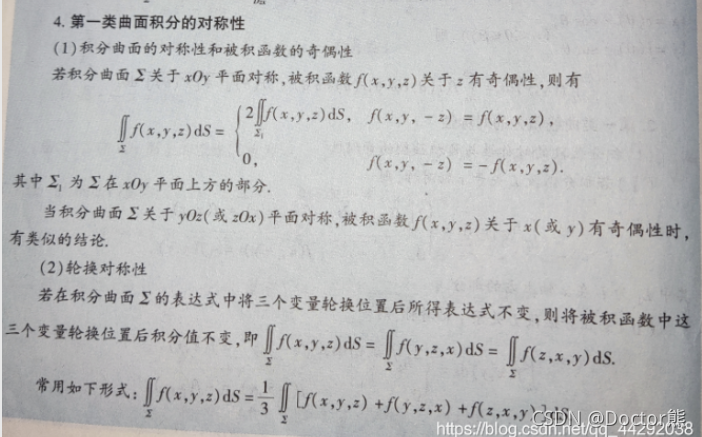 4. 第一类曲面积分的对称性
(1)积分曲面的对称性和被积函数的奇偶性
若积分曲面 Σ 关于 xOy 平面对称,被积函数 f(x,y,z) 关于 z 有奇偶性,则有
∬_Σ f(x,y,z)dS = { 2∬_{Σ₁} f(x,y,z)dS, f(x,y,-z) = f(x,y,z),
0, f(x,y,-z) = -f(x,y,z).
其中 Σ₁ 为 Σ 在 xOy 平面上方的部分.
当积分曲面 Σ 关于 yOz(或 zOx)平面对称,被积函数 f(x,y,z) 关于 x(或 y)有奇偶性时,
有类似的结论.
(2)轮换对称性
若在积分曲面 Σ 的表达式中将三个变量轮换位置后所得表达式不变,则将被积函数中这
三个变量轮换位置后积分值不变,即 ∬_Σ f(x,y,z)dS = ∬_Σ f(y,z,x)dS = ∬_Σ f(z,x,y)dS.
常用如下形式: ∬_Σ f(x,y,z)dS = 1/3 ∬_Σ [f(x,y,z) + f(y,z,x) + f(z,x,y)]dS.
CSDN @Doctor熊
https://blog.csdn.net/qq_44292038